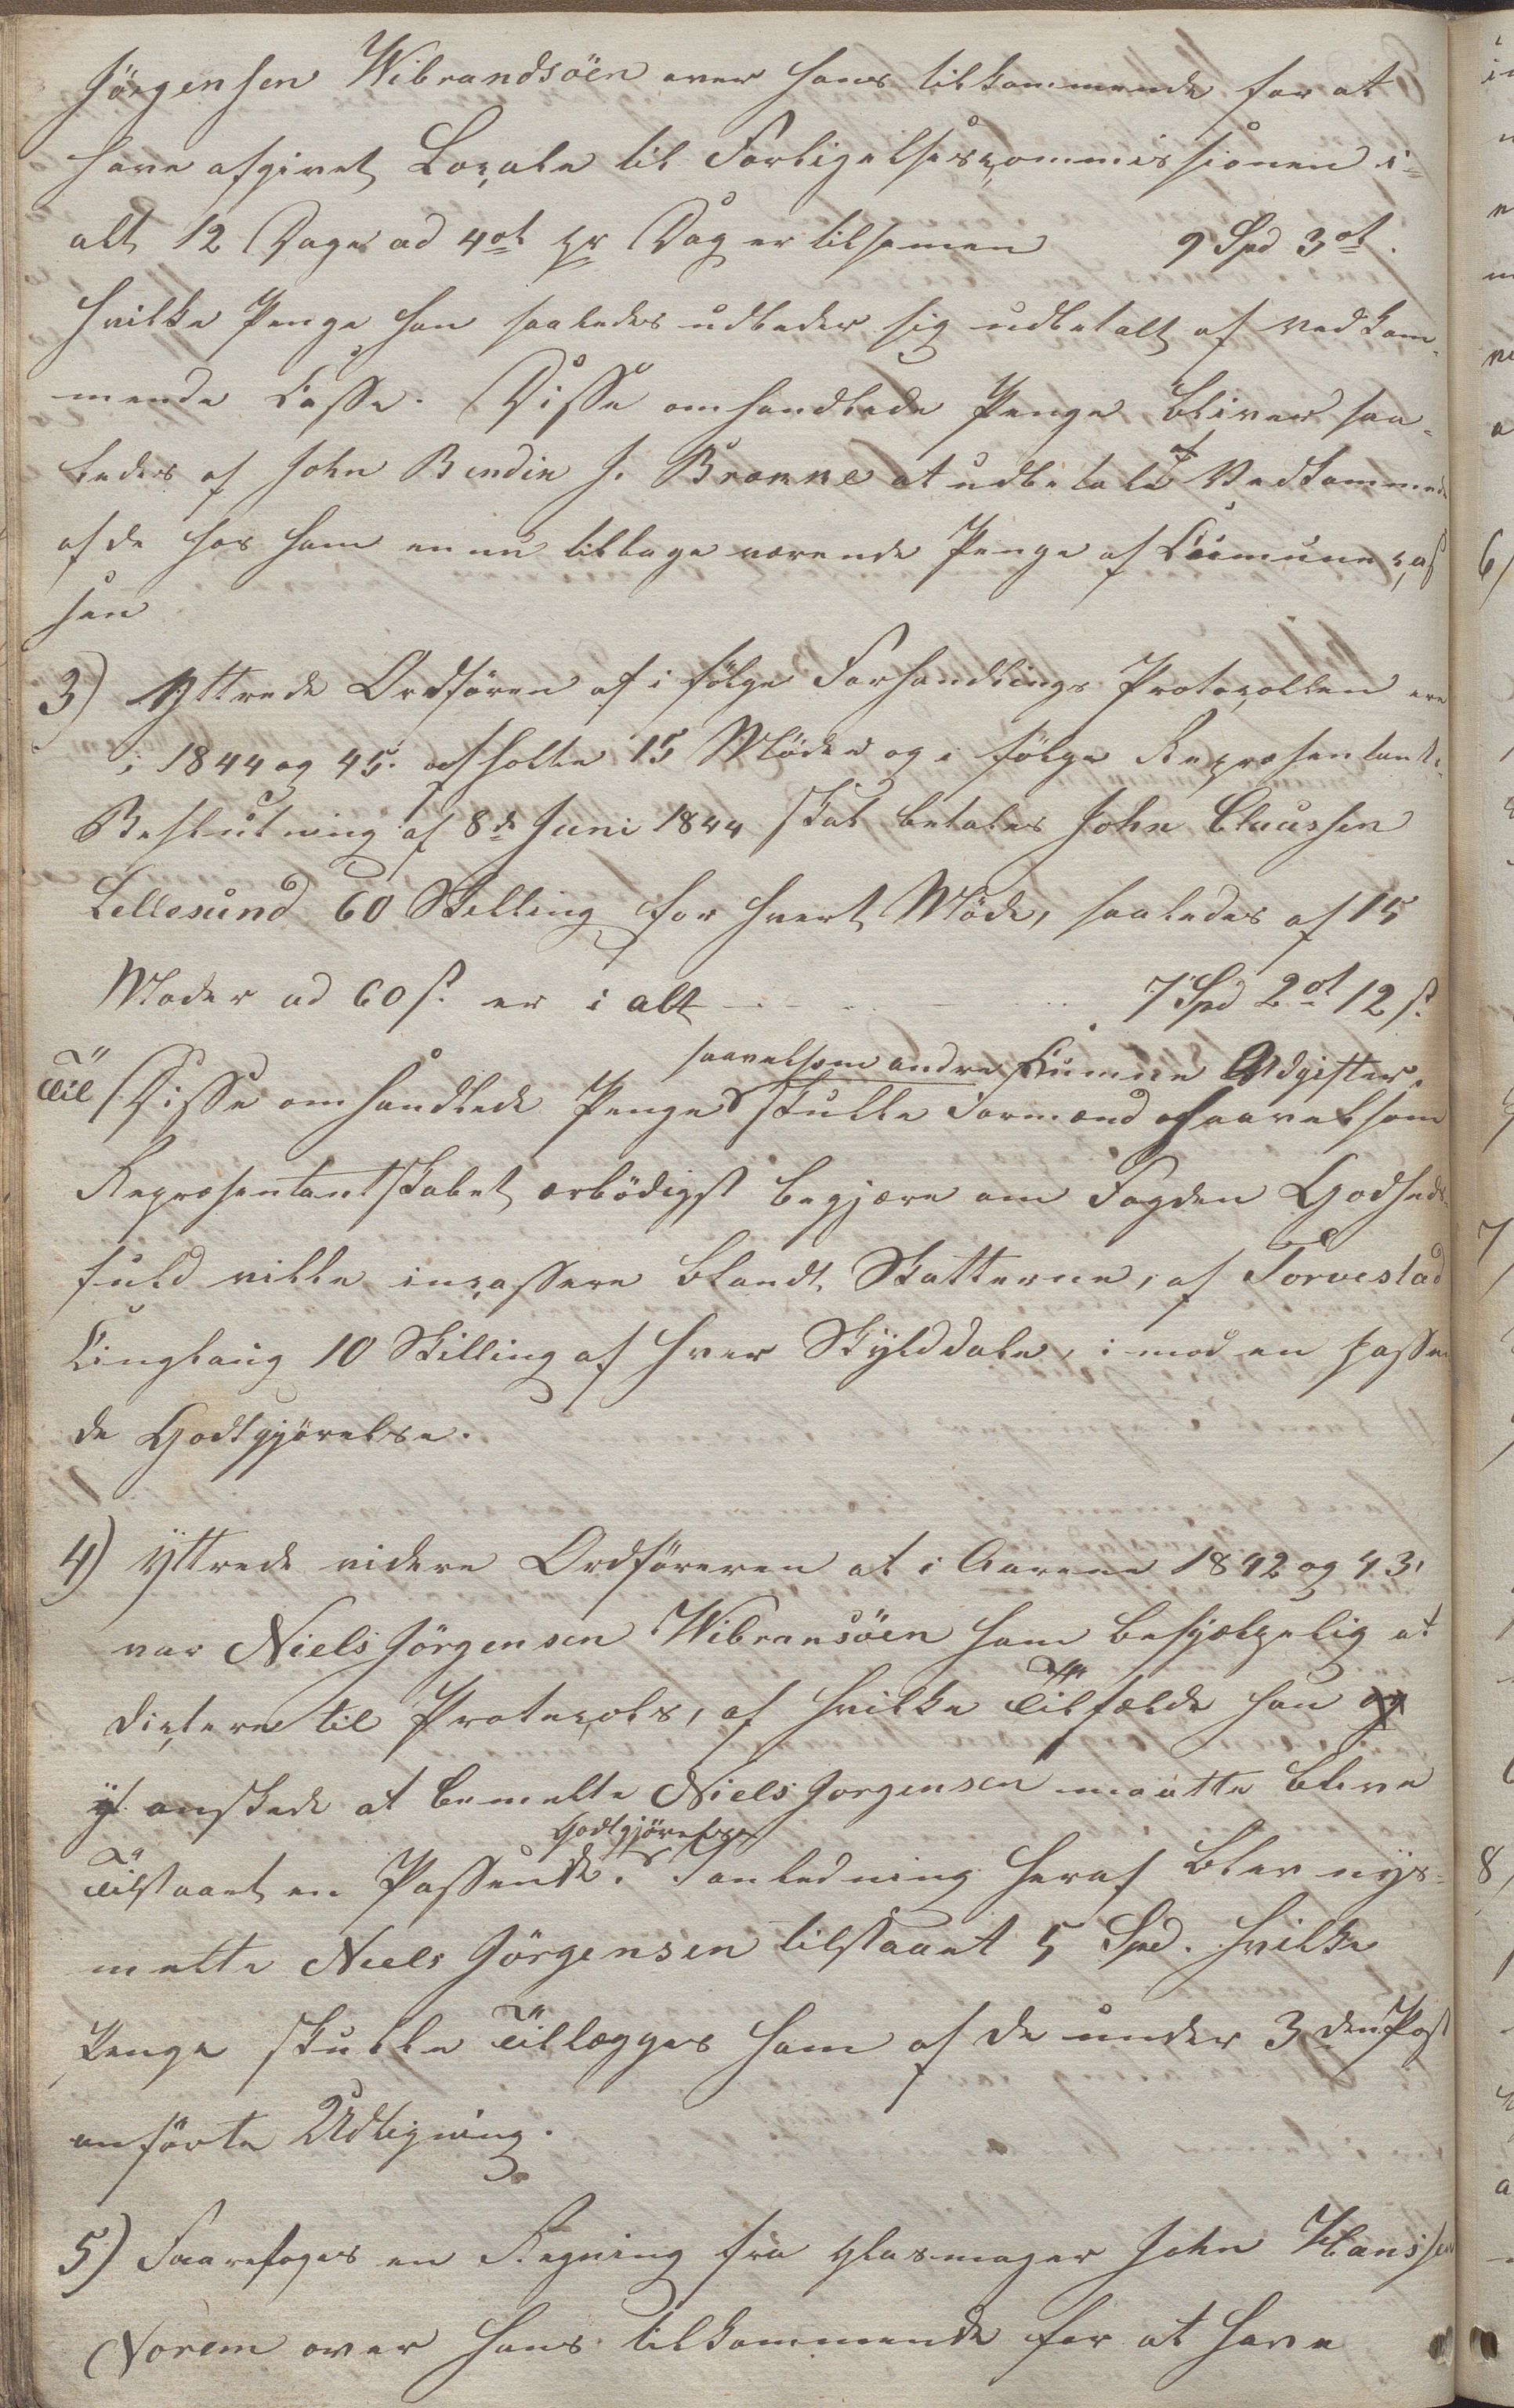 Jörgensen Wibrandsöen over hans tilkommende for at
have afgivet Locale til Forligelsescommissionen i-
alt 12 Dage ad 4ot pr Dag er tilsamen 9 Spd 3ot.
hvilke Penge han saaledes udbeder sig udbetalt af vedkom-
mende Casse. Disse omhandlede Penge bliver saa-
ledes af John Bendix s. Brønne at udbetale af Vedkommende
af de hos ham ennu tilbage værende Penge af Comune cas
sen
3) Yttrede Ordføren at i følge Forhandlings Protocollen ere
i 1844 og 45. afholte 15 Møder og i følge Repræsentant-
Beslutning af 8de Juni 1844 skal betales John Claussen
Lellesund 60 Skilling for hvert Møde, saaledes af 15
Møder ad 60 s. er i alt - - - 7 Spd 2ot 12 s.
saavelsom andre Kumne Udgifter
Til Disse omhandlede Penge skulle Formænd saavelsom
Repræsentantskabet ærbödigst begjære om Fogden Godheds-
fuld ville incassere blandt Skatterne, af Torvestad
Tinglaug 10 Skilling af hver Skylddaler, imod en passen
de Godtgjörelse.
4) Yttrede videre Ordføreren at i Aarene 1842 og 43,
var Niels Jörgensen Wibransöen ham behjælpelig at
dictere til Protocols, af hvilke Tilfælde han og
ønskede at bemelte Niels Jorgensen maatte blive
Godtgjörelse
Tilstaaet en Passende. I anledning heraf blev nys-
melte Niels Jörgensen tilstaaet 5 Spd. hvilke
Penge skulle Tillægges ham af de under 3den Post
anførte Udligning.
5) Foorefoges en Regning fra Glasmager John Hanssen
Norem over hans tilkommende for at have